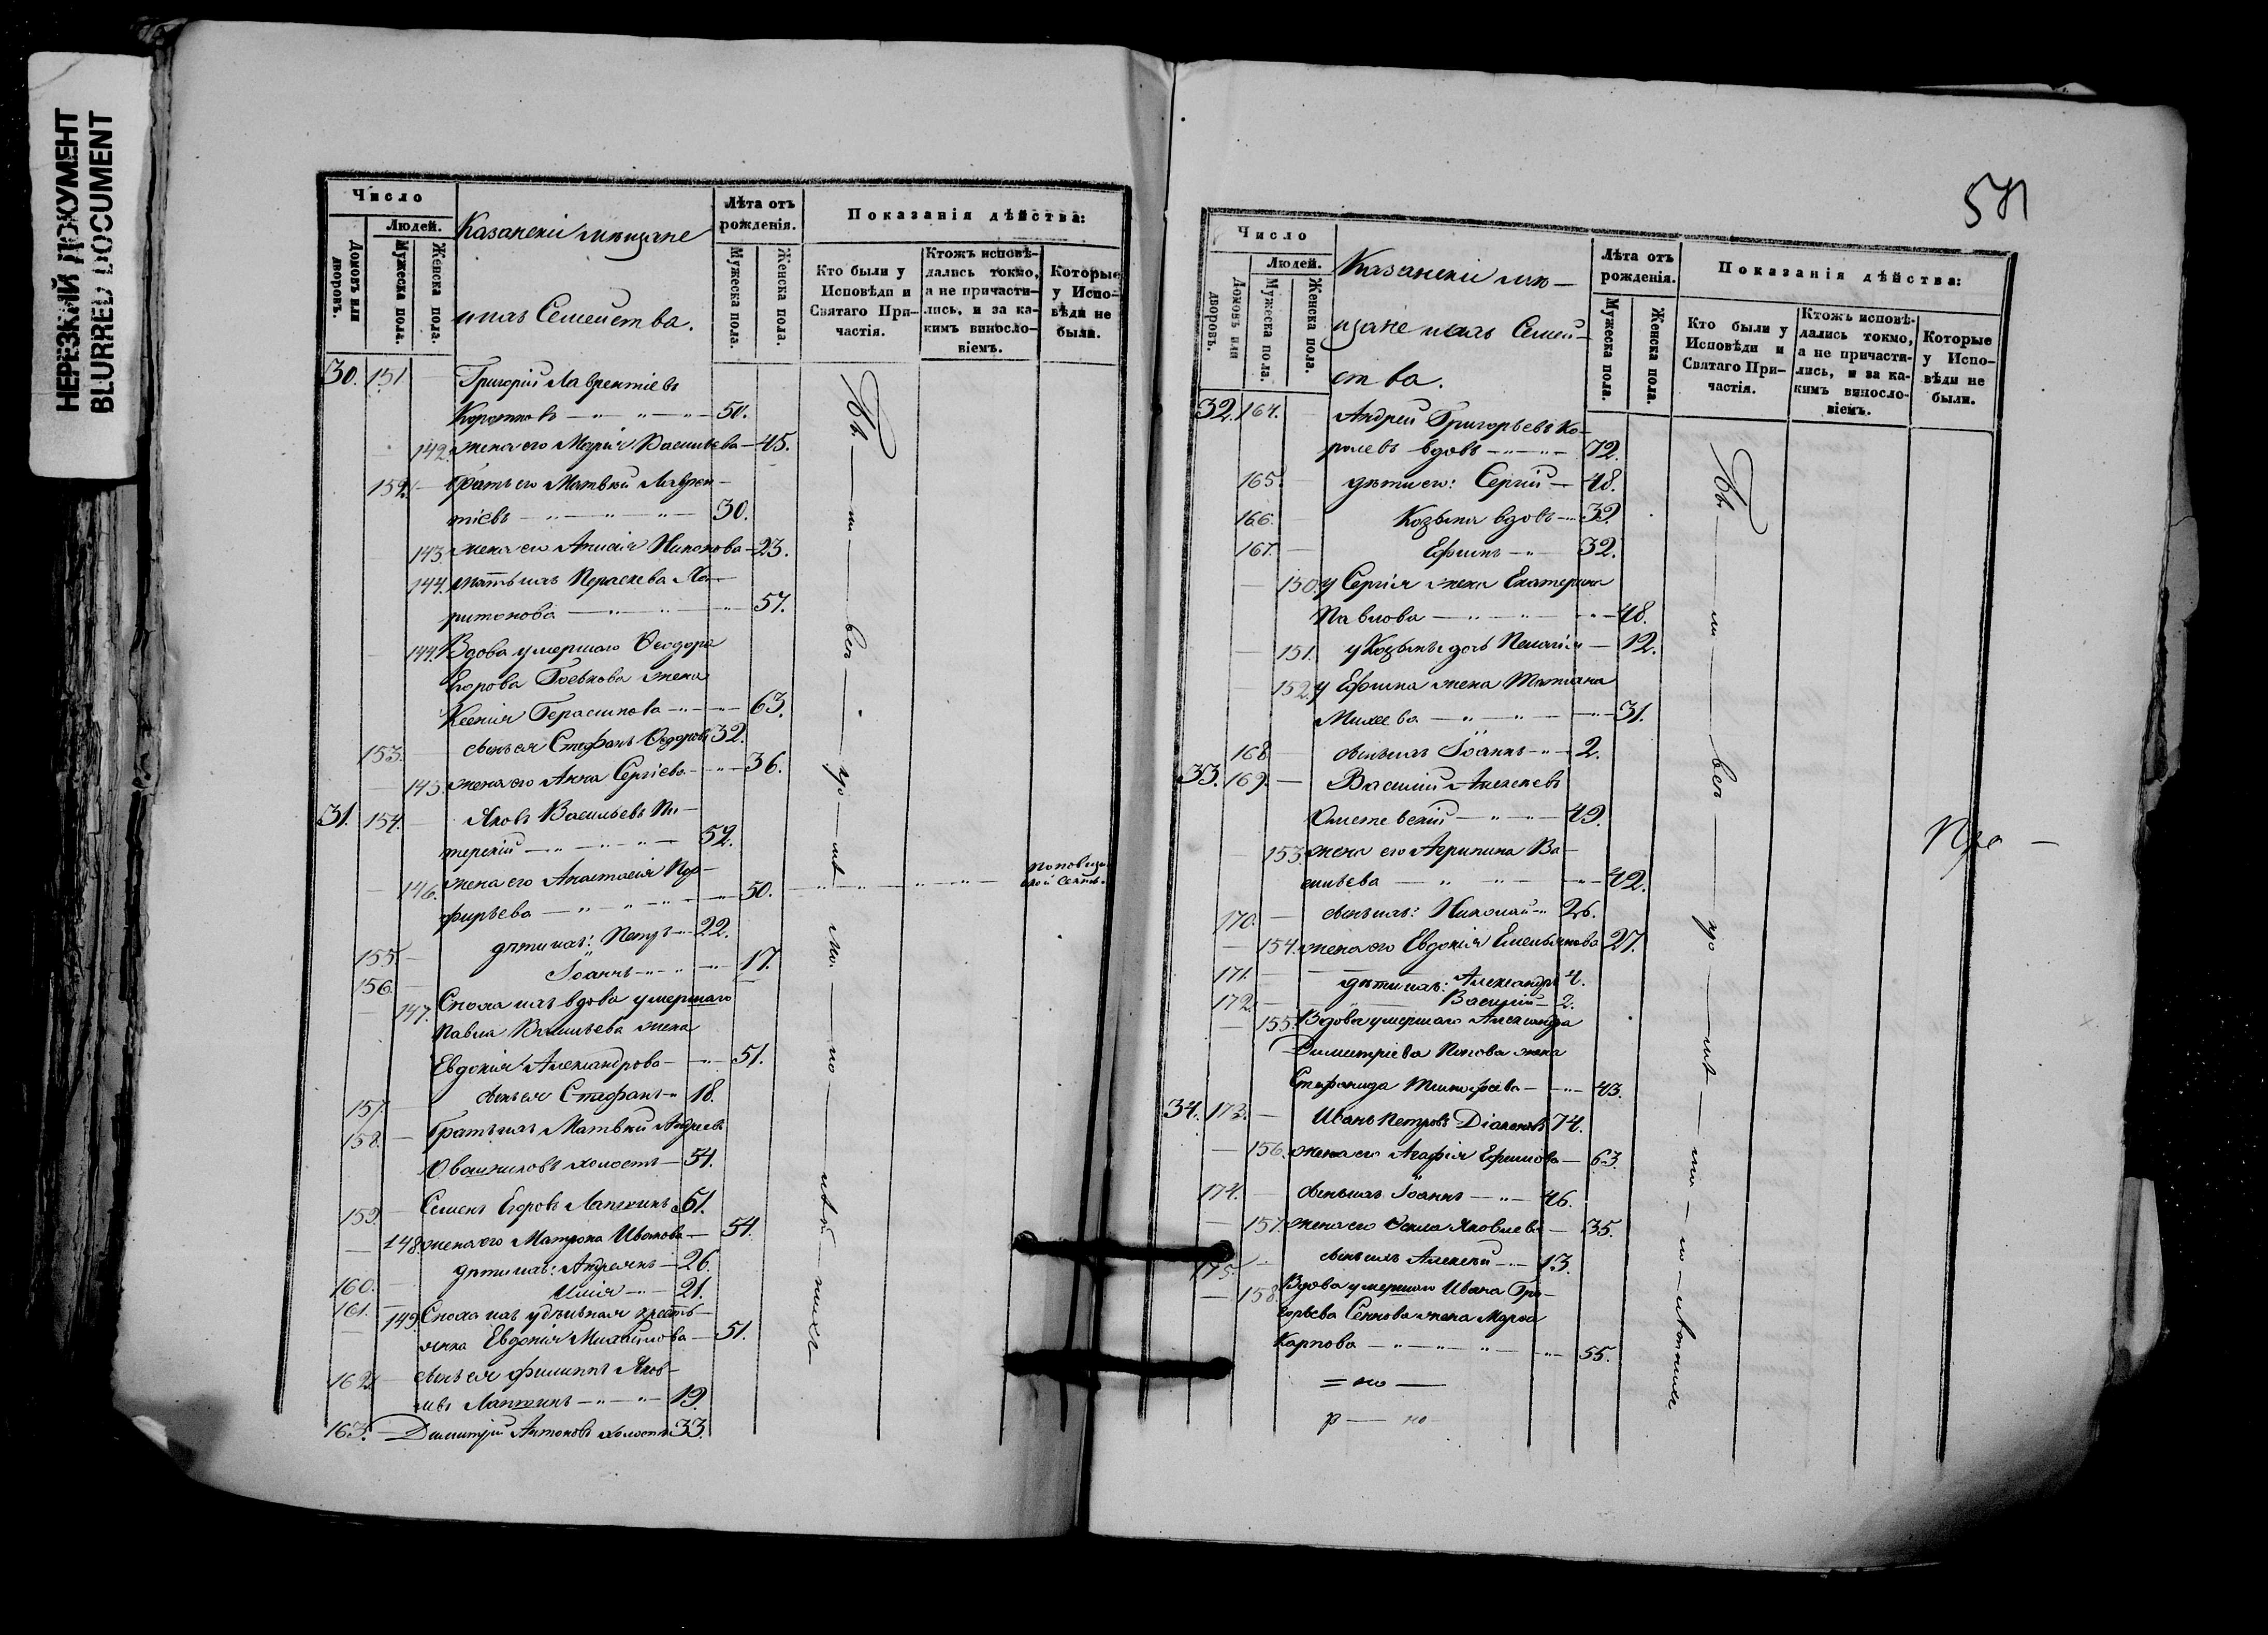 НЕРЕЗКИЙ ДОКУМЕНТ
BLURRED DOCUMENT
Число
Людей.
Домовъ или дворовъ.
Мужеска пола.
Женска пола.
Казанскіе мѣщане
и ихъ Семейства.
Лѣта отъ рожденія.
Мужеска пола.
Женска пола.
Показанія дѣйства:
Кто были у Исповѣди и Святаго Причастія.
Ктожъ исповѣдались токмо, а не причастились, и за какимъ винословіемъ.
Которые у Исповѣди не были.
30. 151 Григорій Лаврентіевъ
Коротковъ 50.
142. жена его Марія Васильева 45.
152. братъ его Матвѣй Лаврен-
тіевъ 30.
143. жена его Анисія Никонова 23.
144. мать ихъ Параскева Ха-
ритонова 57.
144. Вдова умершаго Ѳеодора
Егорова жена
Ксенія Герасимова 63.
153. сынъ ея Стефанъ Ѳедоровъ 32.
145. жена его Анна Сергіева 36.
31. 154. Яковъ Васильевъ Пи-
терскій 52.
146. жена его Анастасія Пор-
фирьева 50. поповщи-
ской секты.
155. дѣти ихъ: Петръ 22.
156. Іоаннъ 17.
147. Сноха ихъ вдова умершаго
Павла Васильева жена
Евдокія Александрова 51.
157. сынъ ея Стефанъ 18.
158. братъ ихъ Матвѣй Андреевъ
Овчинниковъ холостъ 54.
159. Семенъ Егоровъ Лапшинъ 61.
148. жена его Матрона Иванова 54.
160. дѣти ихъ: Андреянъ 26.
161. Илія 21.
149. Сноха ихъ удѣльная кресть-
янка Евдокія Михайлова 51.
162. сынъ ея Филиппъ Яков-
левъ Лапшинъ 19.
163. Димитрій Антоновъ холостъ 33.
571
Число
Людей.
Домовъ или дворовъ.
Мужеска пола.
Женска пола.
Казанскіе мѣ-
щане и ихъ Семей-
ства.
Лѣта отъ рожденія.
Мужеска пола.
Женска пола.
Показанія дѣйства:
Кто были у Исповѣди и Святаго Причастія.
Ктожъ исповѣдались токмо, а не причастились, и за какимъ винословіемъ.
Которые у Исповѣди не были.
32. 164. Андрей Григорьевъ Ко-
ролевъ вдовъ 72.
165. дѣти его: Сергій 48.
166. Козьма вдовъ 32.
167. Ефимъ 32.
150. у Сергія жена Екатерина
Павлова 48.
151. у Козьмы дочь Пелагія 12.
152. у Ефима жена Татіана
Михеева 31.
168. сынъ ихъ Іоаннъ 2.
33. 169. Василій Алексѣевъ
49.
153. жена его Агрипина Ва-
сильева 42.
170. сынъ ихъ: Николай 26.
154. жена его Евдокія Емельянова 27.
171. дѣти ихъ: Александръ 4.
172. Василій 2.
155. Вдова умершаго Александра
Димитріева Попова жена
Стефанида Тимофеева 43.
34. 173. Иванъ Петровъ Діаконовъ 74.
156. жена его Агафія Ефимова 63.
174. сынъ ихъ Іоаннъ 46.
157. жена его Ѳекла Яковлева 35.
175. сынъ ихъ Алексѣй 13.
158. Вдова умершаго Ивана Гри-
горьева Сѣннова жена Марѳа
Карпова 55.
Пра —